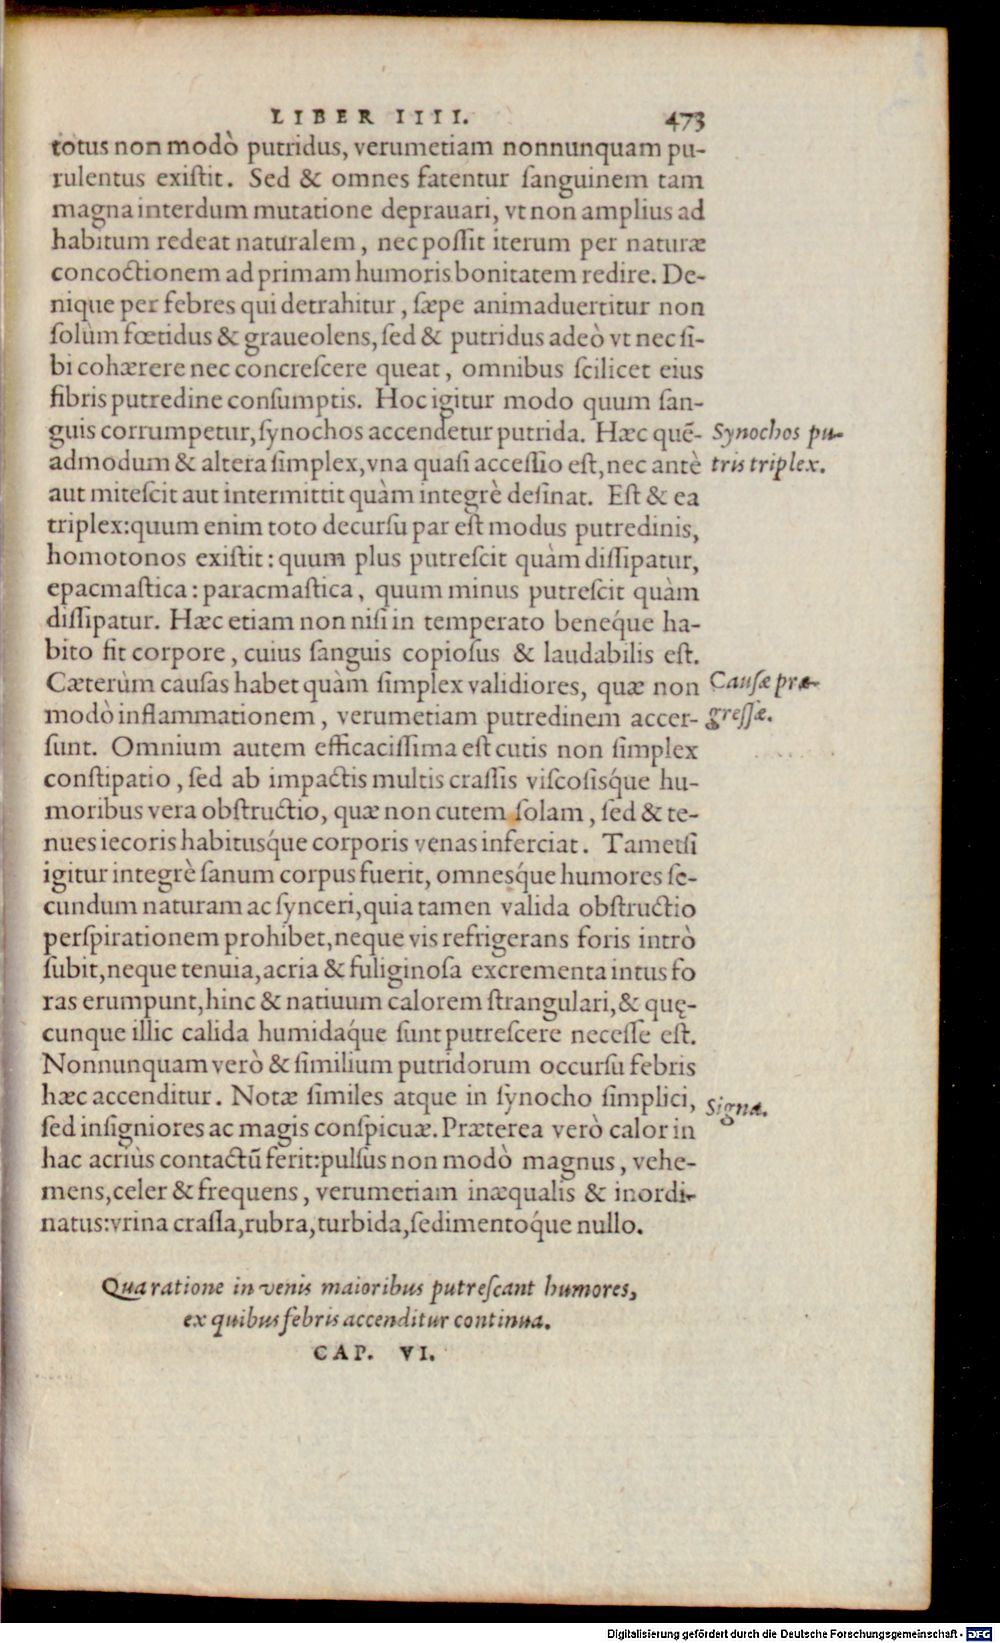 LIBER IIII. 473
totus non modò putridus, verumetiam nonnunquam pu-
rulentus existit. Sed & omnes fatentur sanguinem tam
magna interdum mutatione deprauari, vt non amplius ad
habitum redeat naturalem, nec possit iterum per naturæ
concoctionem ad primam humoris bonitatem redire. De-
nique per febres qui detrahitur, sæpe animaduertitur non
solùm fœtidus & graueolens, sed & putridus adeò vt nec si-
bi cohærere nec concrescere queat, omnibus scilicet eius
fibris putredine consumptis. Hoc igitur modo quum san-
guis corrumpetur, synochos accendetur putrida. Hæc quē-
Synochos pu-
admodum & altera simplex, vna quasi accessio est, nec antè
tris triplex.
aut mitescit aut intermittit quàm integrè desinat. Est & ea
triplex: quum enim toto decursu par est modus putredinis,
homotonos existit: quum plus putrescit quàm dissipatur,
epacmastica: paracmastica, quum minus putrescit quàm
dissipatur. Hæc etiam non nisi in temperato benéque ha-
bito fit corpore, cuius sanguis copiosus & laudabilis est.
Cæterùm causas habet quàm simplex validiores, quæ non
Causæ præ-
modò inflammationem, verumetiam putredinem accer-
gressæ.
sunt. Omnium autem efficacissima est cutis non simplex
constipatio, sed ab impactis multis crassis viscosisq́ue hu-
moribus vera obstructio, quæ non cutem solam, sed & te-
nues iecoris habitusq́ue corporis venas inferciat. Tametsi
igitur integrè sanum corpus fuerit, omnesq́ue humores se-
cundum naturam ac synceri, quia tamen valida obstructio
perspirationem prohibet, neque vis refrigerans foris intrò
subit, neque tenuia, acria & fuliginosa excrementa intus fo
ras erumpunt, hinc & natiuum calorem strangulari, & quę-
cunque illic calida humidaq́ue sunt putrescere necesse est.
Nonnunquam verò & similium putridorum occursu febris
hæc accenditur. Notæ similes atque in synocho simplici,
Signa.
sed insigniores ac magis conspicuæ. Præterea verò calor in
hac acriùs contactū ferit: pulsus non modò magnus, vehe-
mens, celer & frequens, verumetiam inæqualis & inordi-
natus: vrina crassa, rubra, turbida, sedimentoq́ue nullo.
Qua ratione in venis maioribus putrescant humores,
ex quibus febris accenditur continua.
CAP. VI.
Digitalisierung gefördert durch die Deutsche Forschungsgemeinschaft - DFG